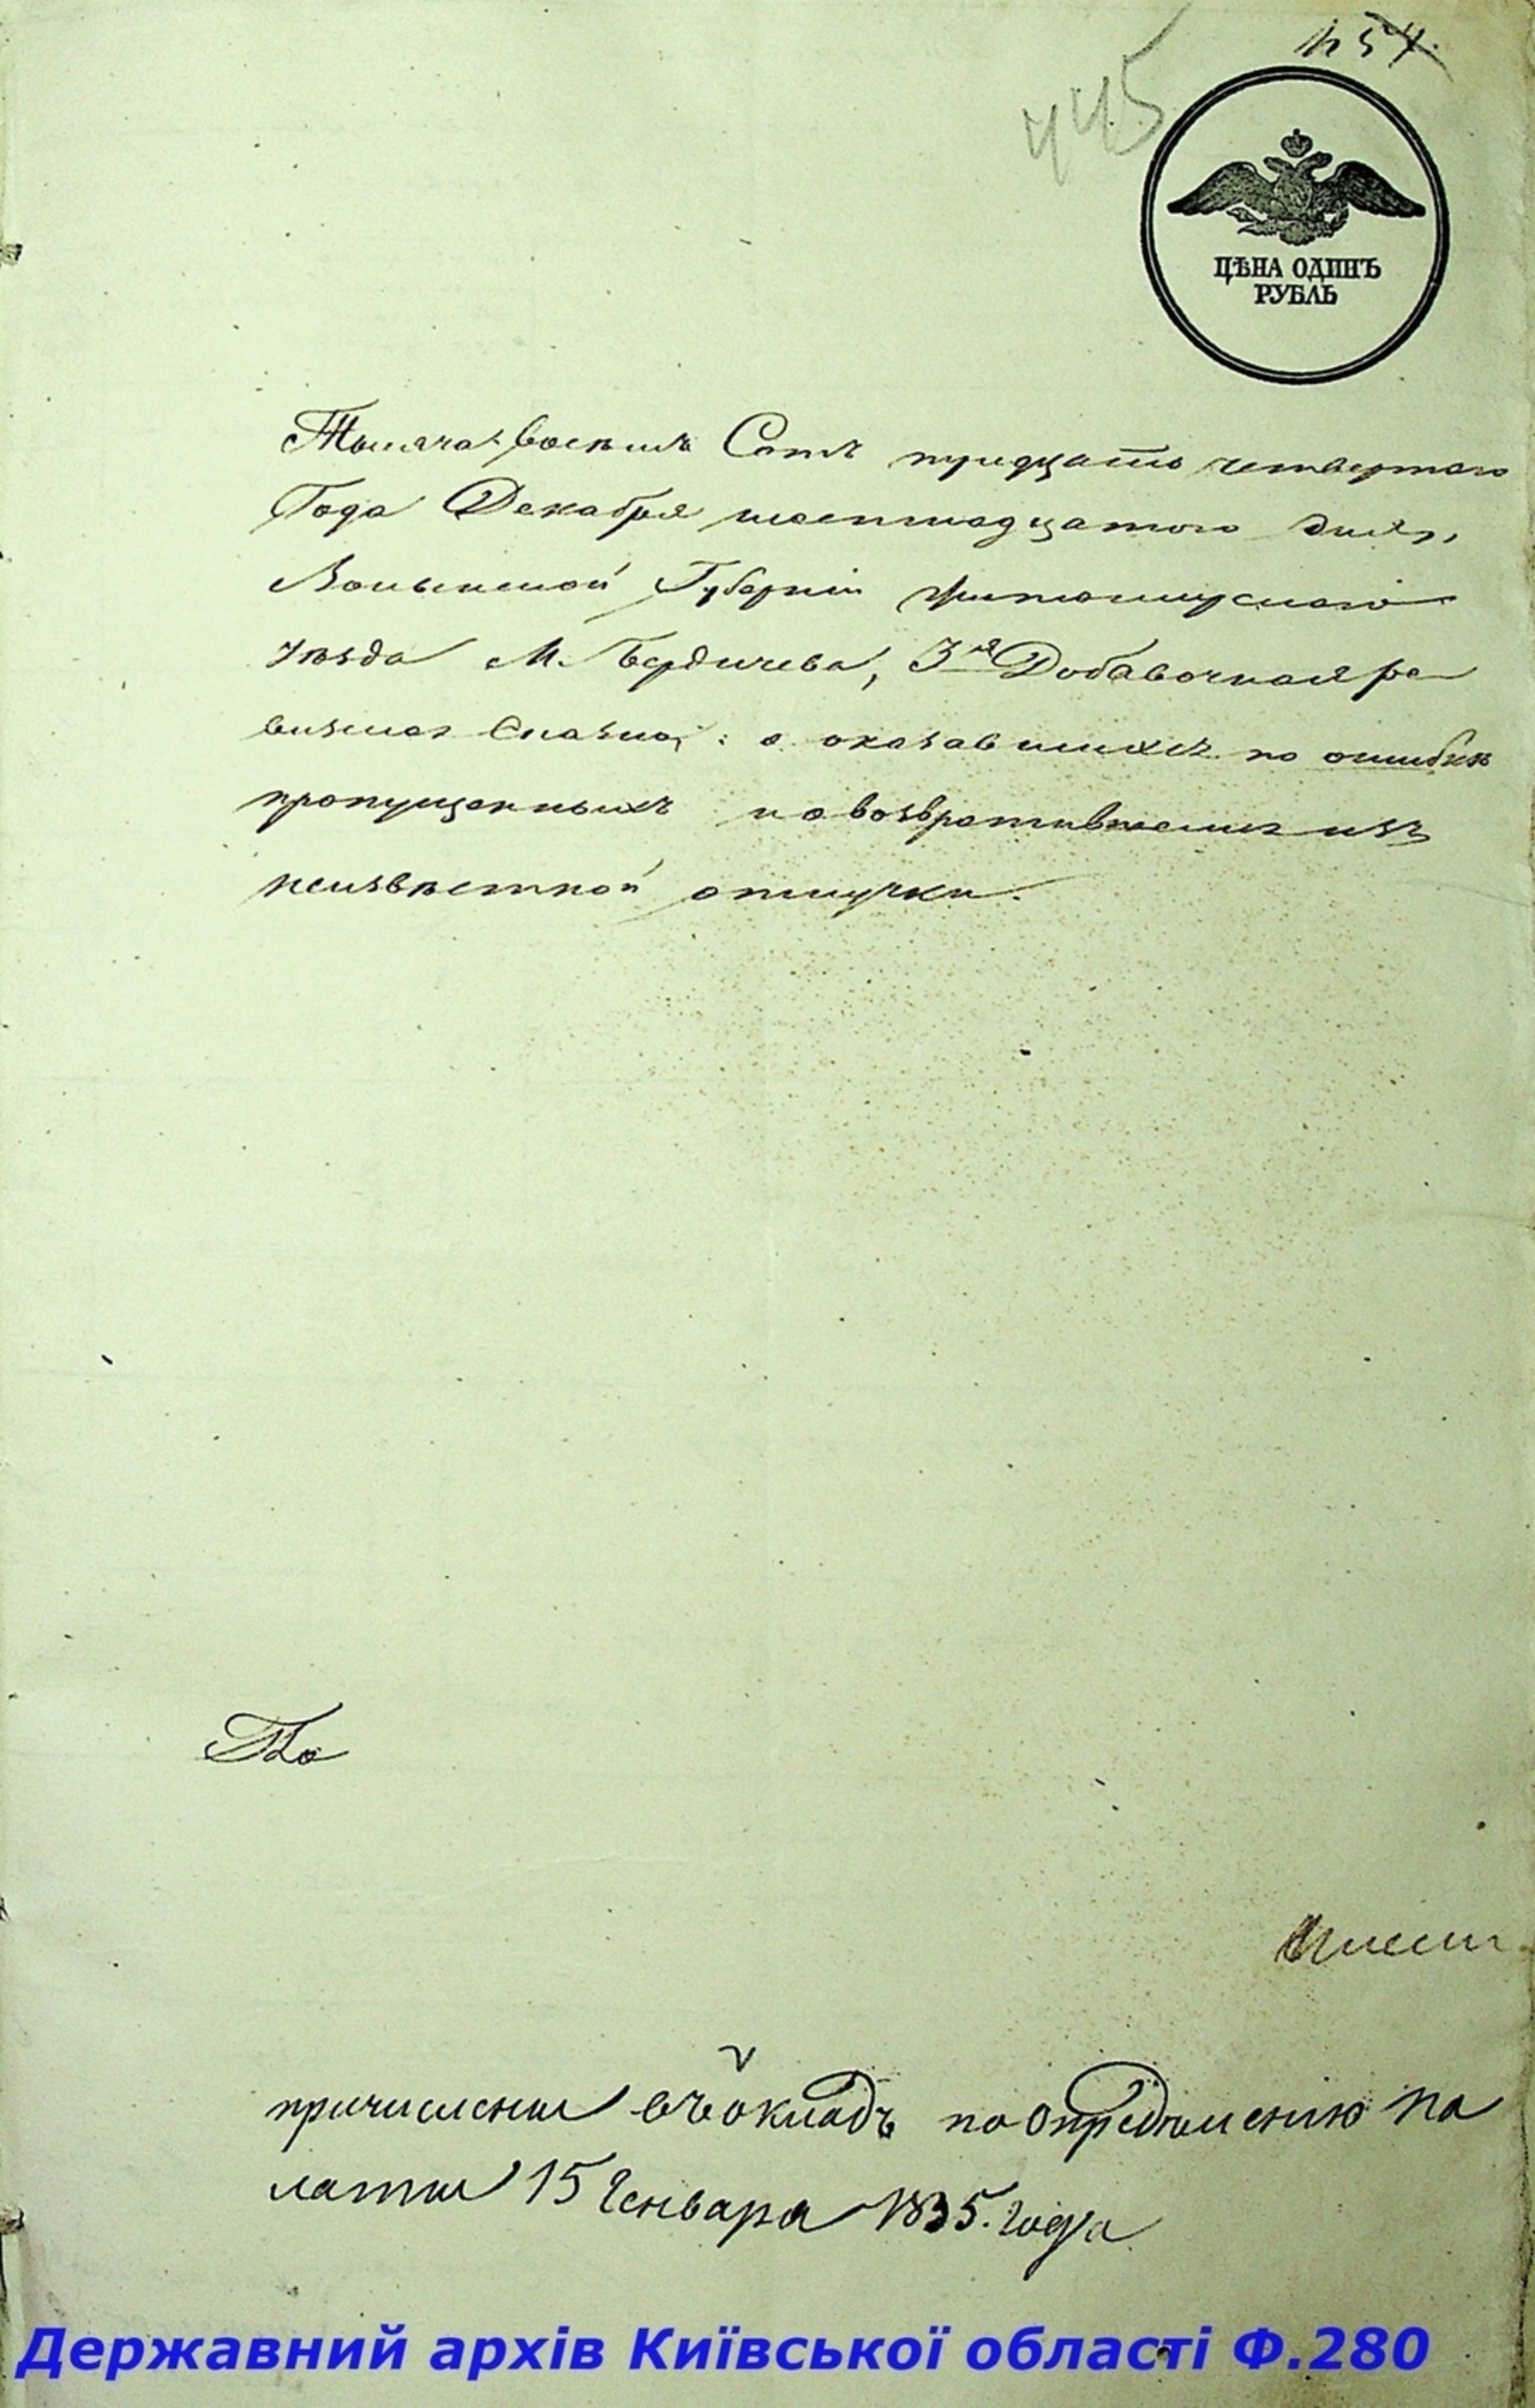 457
445
ЦѢНА ОДИНЪ
РУБЛЬ
Тысяча восемь Сотъ тридцать четвертаго
Года Декабря шестнадцатого дня,
Волынской Губерніи Житомирскаго
уѣзда М. Бердичева, 3я Добавочная ре
визская Сказка: о оказавшихся по ошибкѣ
пропущенныхъ и о возвратившихся изъ
неизвѣстной отлучки.
По
причислены въ окладъ по опредѣленію Па
латы 15 Генваря 1835. года
Державний архів Київської області Ф.280